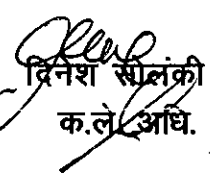 दिनेश सोलंकी
क.ले. अधि.